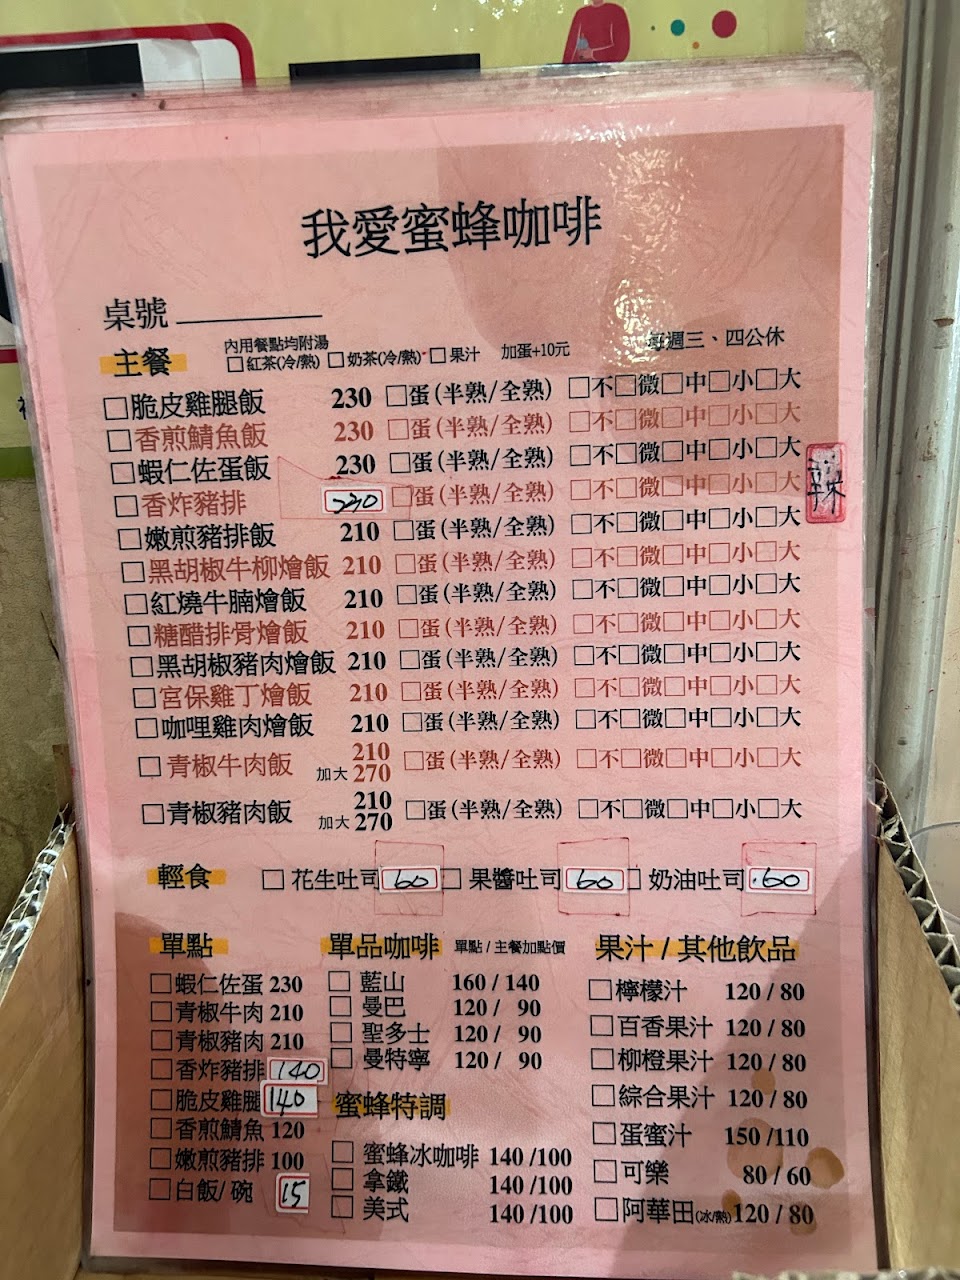 我愛蜜蜂咖啡
桌號
主餐
內用餐點均附湯
□紅茶(冷/熱) □奶茶(冷/熱) □果汁 加蛋+10元
每週三、四公休
□脆皮雞腿飯 230 □蛋(半熟/全熟) □不□微□中□小□大
□香煎鯖魚飯 230 □蛋(半熟/全熟) □不□微□中□小□大
□蝦仁佐蛋飯 230 □蛋(半熟/全熟) □不□微□中□小□大
□香炸豬排 230 □蛋(半熟/全熟) □不□微□中□小□大
辣
□嫩煎豬排飯 210 □蛋(半熟/全熟) □不□微□中□小□大
□黑胡椒牛柳燴飯 210 □蛋(半熟/全熟) □不□微□中□小□大
□紅燒牛腩燴飯 210 □蛋(半熟/全熟) □不□微□中□小□大
□糖醋排骨燴飯 210 □蛋(半熟/全熟) □不□微□中□小□大
□黑胡椒豬肉燴飯 210 □蛋(半熟/全熟) □不□微□中□小□大
□宮保雞丁燴飯 210 □蛋(半熟/全熟) □不□微□中□小□大
□咖哩雞肉燴飯 210 □蛋(半熟/全熟) □不□微□中□小□大
□青椒牛肉飯 210 □蛋(半熟/全熟) □不□微□中□小□大
加大 270
□青椒豬肉飯 210 □蛋(半熟/全熟) □不□微□中□小□大
加大 270
輕食 □花生吐司 60 □果醬吐司 60 □奶油吐司 60
單點
□蝦仁佐蛋 230
□青椒牛肉 210
□青椒豬肉 210
□香炸豬排 140
□脆皮雞腿 140
□香煎鯖魚 120
□嫩煎豬排 100
□白飯/碗 15
單品咖啡 單點/主餐加點價
□藍山 160 / 140
□曼巴 120 / 90
□聖多士 120 / 90
□曼特寧 120 / 90
蜜蜂特調
□蜜蜂冰咖啡 140 /100
□拿鐵 140 /100
□美式 140 /100
果汁 / 其他飲品
□檸檬汁 120 / 80
□百香果汁 120 / 80
□柳橙果汁 120 / 80
□綜合果汁 120 / 80
□蛋蜜汁 150 /110
□可樂 80 / 60
□阿華田(冰/熱) 120 / 80